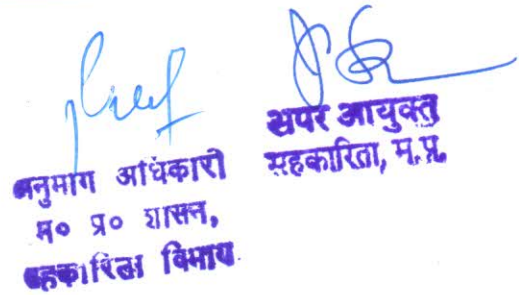 अनुभाग अधिकारी
म० प्र० शासन,
सहकारिता विभाग
अपर आयुक्त
सहकारिता, म.प्र.